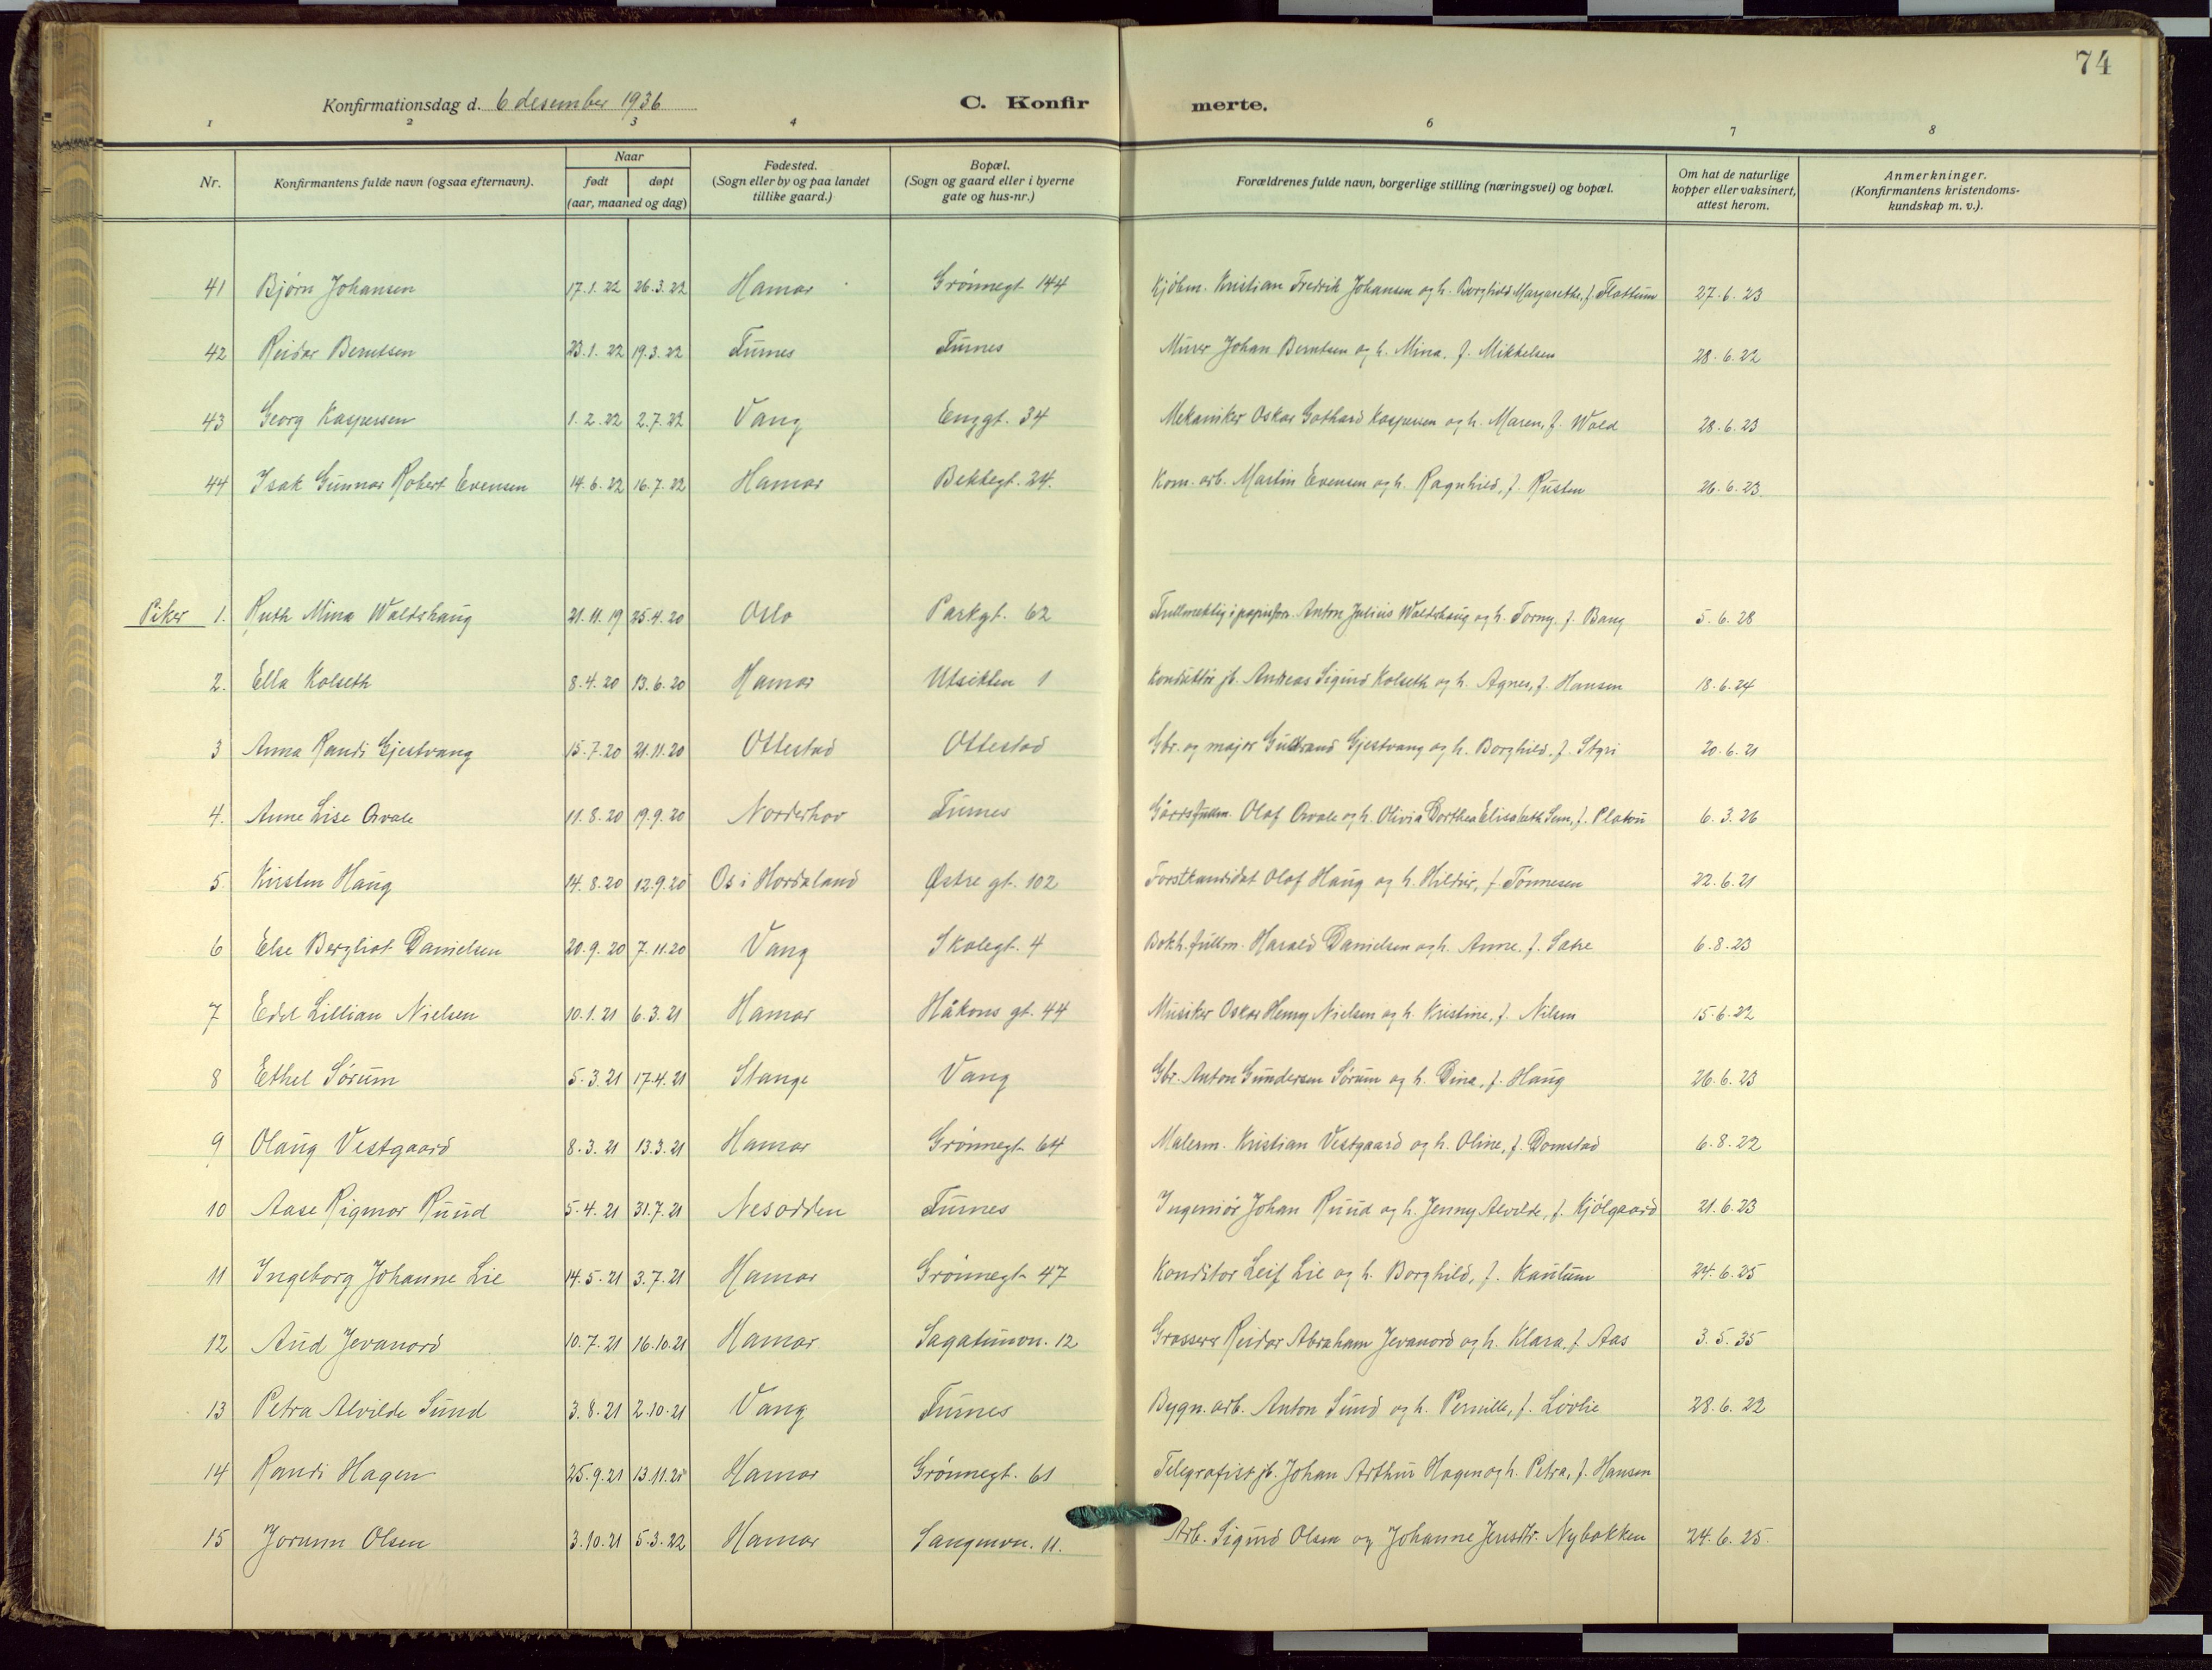 74
Konfirmationsdag d. 6 desember 1936
C. Konfirmerte.
1 2 3 4 6 7 8
Nr. | Konfirmantens fulde navn (ogsaa efternavn). | Naar født | døpt (aar, maaned og dag) | Fødested. (Sogn eller by og paa landet tillike gaard.) | Bopæl. (Sogn og gaard eller i byerne gate og hus-nr.) | Forældrenes fulde navn, borgerlige stilling (næringsvei) og bopæl. | Om hat de naturlige kopper eller vaksinert, attest herom. | Anmerkninger. (Konfirmantens kristendoms-kundskap m. v.).
41 | Bjørn Johansen | 17.1.22 | 26.3.22 | Hamar | Grønnegt 144 | Kjøbm. Kristian Fredrik Johansen og h. Borghild Margarethe, f. Flattum | 27.6.23
42 | Reidar Berntsen | 23.1.22 | 19.3.22 | Furnes | Furnes | Murer Johan Berntsen og h. Mina, f. Mikkelsen | 28.6.22
43 | Georg Kaspersen | 1.2.22 | 2.7.22 | Vang | Enggt. 34 | Mekaniker Oskar Gothard Kaspersen og h. Maren, f. Wold | 28.6.23
44 | Isak Gunnar Robert Evensen | 14.6.22 | 16.7.22 | Hamar | Bekkegt. 24 | Kom. arb. Martin Evensen og h. Ragnhild, f. Rusten | 26.6.23.
Piker 1. | Ruth Mina Waldshaug | 21.11.19 | 25.4.20 | Oslo | Parkgt. 62 | Anton Julius Waldshaug og h. Torny, f. Bang | 5.6.28
2. | Ella Kolseth | 8.4.20 | 13.6.20 | Hamar | Utsikten 1 | Konduktør jb. Andreas Sigurd Kolseth og h. Agnes, f. Hansen | 18.6.24
3 | Anna Randi Gjestvang | 15.7.20 | 21.11.20 | Ottestad | Ottestad | Gbr. og major Gulbrand Gjestvang og h. Borghild, f. Styri | 20.6.21
4. | Anne Lise Qvale | 11.8.20 | 19.9.20 | Norderhov | Furnes | Gårdsfullm. Olaf Qvale og h. Olivia Dorthea Elisabeth Sem, f. Platou | 6.3.26
5. | Kirsten Haug | 14.8.20 | 12.9.20 | Os i Hordaland | Østre gt. 102 | Forstkandidat Olaf Haug og h. Hildur, f. Tønnesen | 22.6.21
6 | Else Bergliot Danielsen | 20.9.20 | 7.11.20 | Vang | Skolegt. 4 | Bokh. fullm. Harald Danielsen og h. Anne, f. Sætre | 6.8.23
7 | Edel Lillian Nielsen | 10.1.21 | 6.3.21 | Hamar | Håkons gt. 44 | Musiker Oskar Henry Nielsen og h. Kristine, f. Nilsen | 15.6.22
8 | Ethel Sørum | 5.3.21 | 17.4.21 | Stange | Vang | Gbr. Anton Gundersen Sørum og h. Dina, f. Haug | 26.6.23
9 | Olaug Vestgaard | 8.3.21 | 13.3.21 | Hamar | Grønnegt 64 | Malerm. Kristian Vestgaard og h. Oline, f. Domstad | 6.8.22
10 | Aase Rigmor Ruud | 5.4.21 | 31.7.21 | Nesodden | Furnes | Ingeniør Johan Ruud og h. Jenny Alvilde, f. Kjølgaard | 21.6.23
11 | Ingeborg Johanne Lie | 14.5.21 | 3.7.21 | Hamar | Grønnegt 47 | Konditor Leif Lie og h. Borghild, f. Kautum | 24.6.25
12 | Aud Jevanord | 10.7.21 | 16.10.21 | Hamar | Sagatunvn. 12 | Grosserer Reidar Abraham Jevanord og h. Klara, f. Aas | 3.5.35
13 | Petra Alvilde Sund | 3.8.21 | 2.10.21 | Vang | Furnes | Bygn. arb. Anton Sund og h. Pernille, f. Løvlie | 28.6.22
14 | Randi Hagen | 25.9.21 | 13.11.21 | Hamar | Grønnegt. 61 | Telegrafist jb. Johan Arthur Hagen og h. Petra, f. Hansen
15 | Jorunn Olsen | 3.10.21 | 5.3.22 | Hamar | Sangenvn. 11. | Arb. Sigurd Olsen og Johanne Jensdtr. Nybakken | 24.6.25.